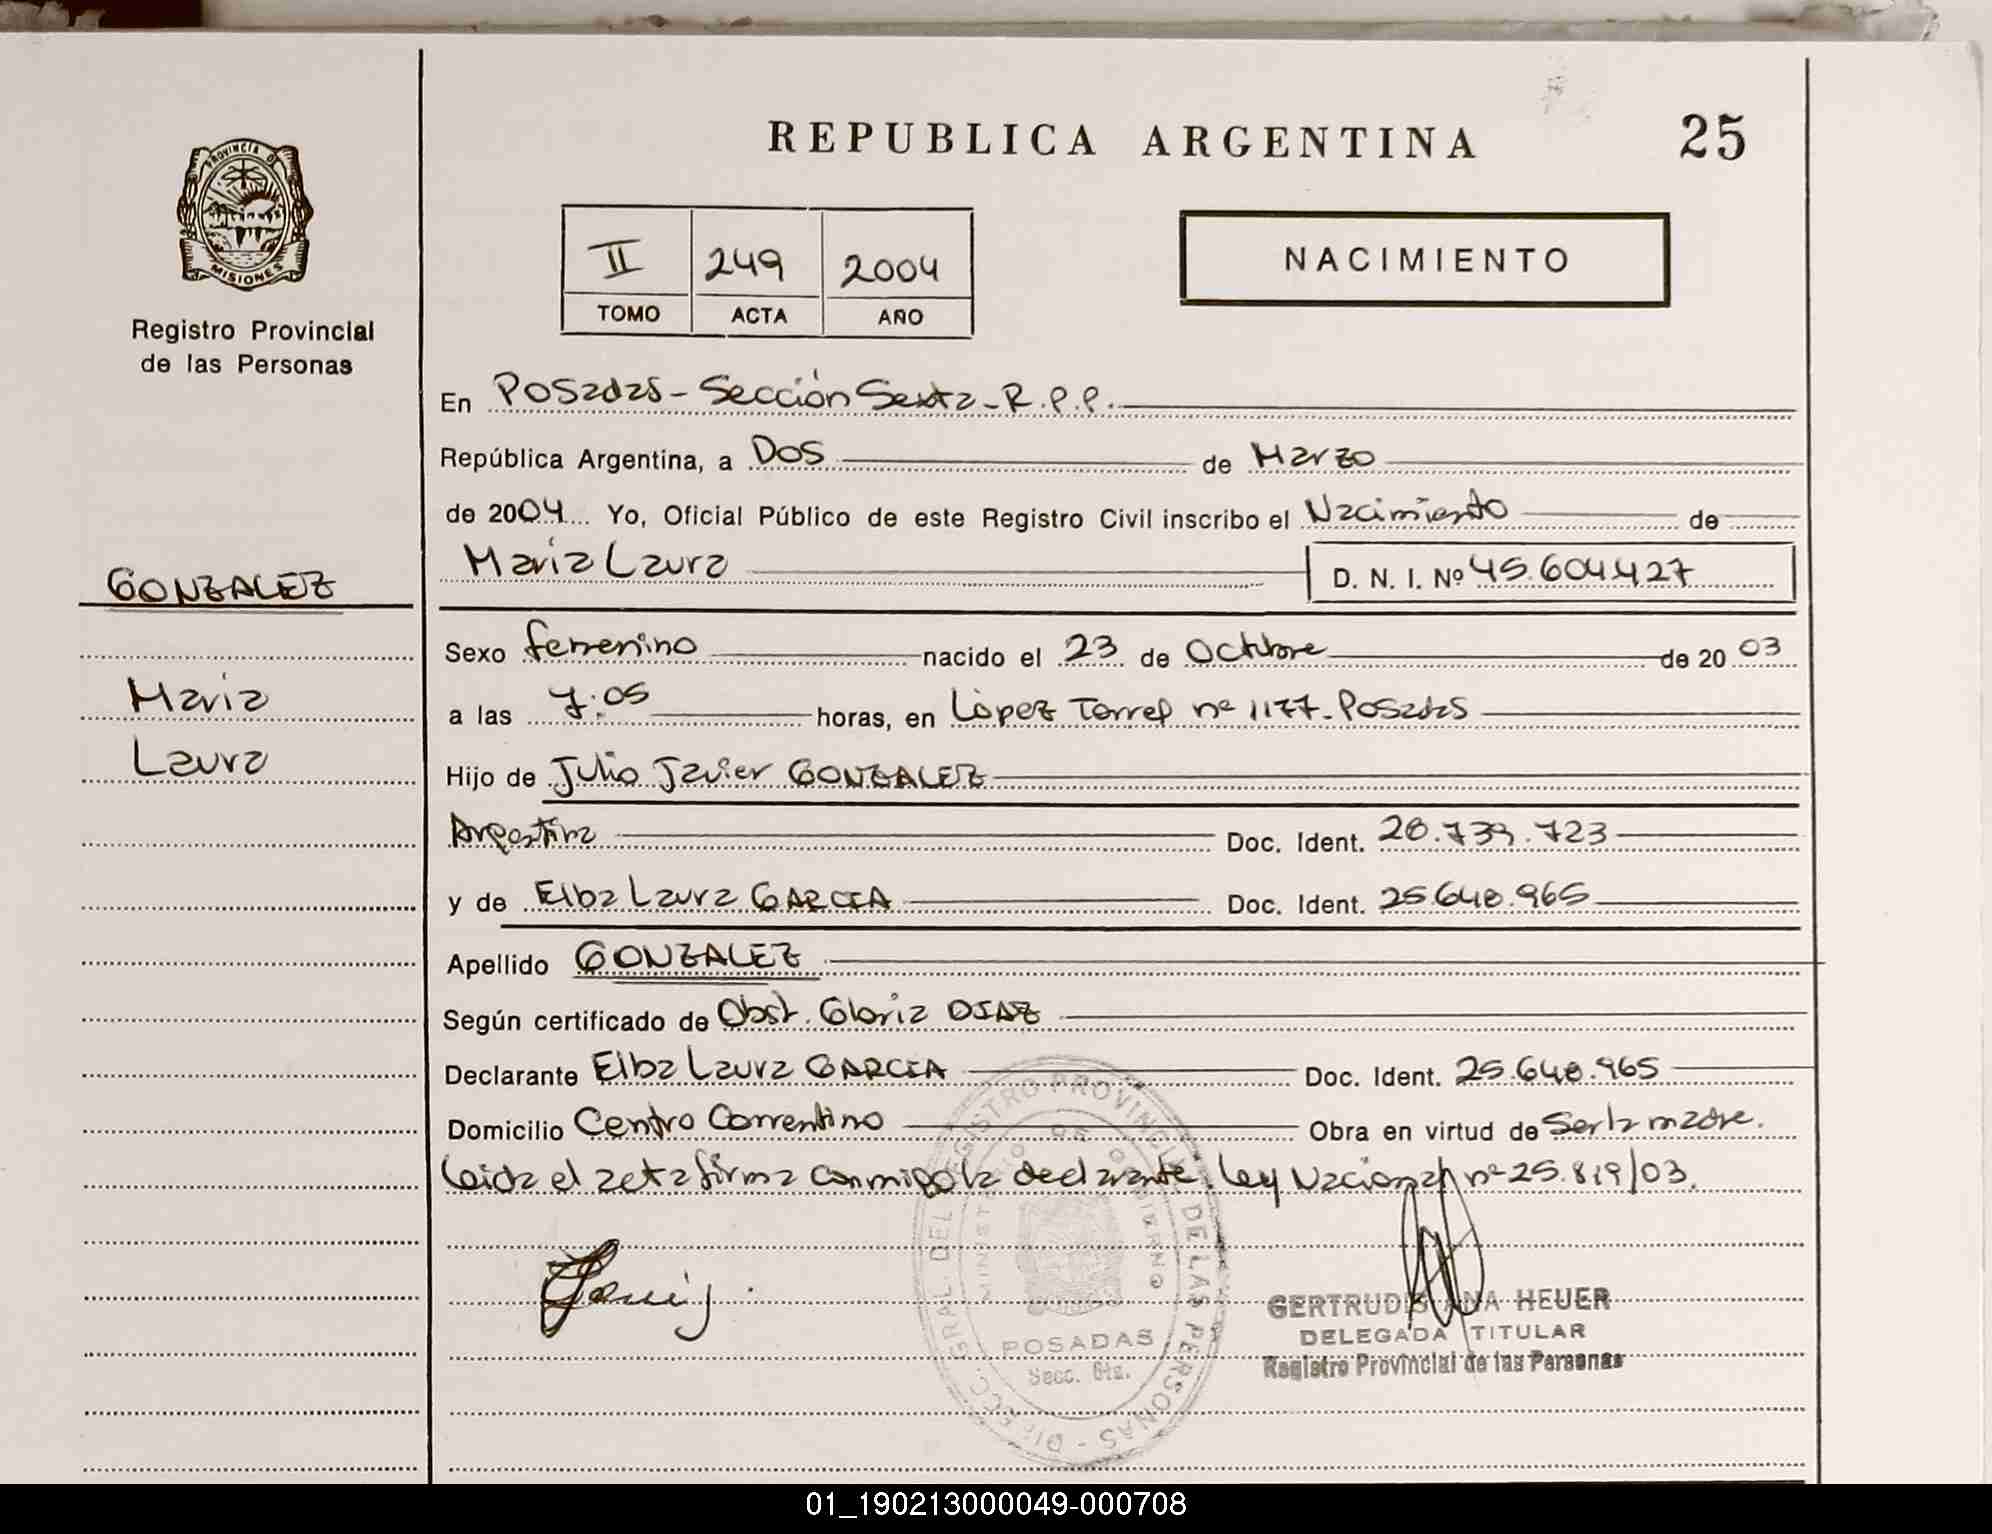 REPUBLICA ARGENTINA
25
PROVINCIA DE
MISIONES
Registro Provincial
de las Personas
II 249 2004
TOMO ACTA AÑO
NACIMIENTO
En Posadas - Sección Sexta - R.P.P.
República Argentina, a Dos de Marzo
de 2004 Yo, Oficial Público de este Registro Civil inscribo el Nacimiento de
Maria Laura D. N. I. Nº 45.604.427
GONZALEZ
Maria
Laura
Sexo femenino nacido el 23 de Octubre de 20 03
a las 7:05 horas, en López Torres nº 1177 - Posadas
Hijo de Julio Javier GONZALEZ
Argentina Doc. Ident. 28.739.723
y de Elba Laura GARCIA Doc. Ident. 25.648.965
Apellido GONZALEZ
Según certificado de Obst. Gloria DIAZ
Declarante Elba Laura GARCIA Doc. Ident. 25.648.965
Domicilio Centro Correntino Obra en virtud de Ser la madre.
Leida el acta firma conmigo la declarante. Ley Nacional nº 25.819/03.
DIRECC. GRAL. DEL REGISTRO PROVINCIAL DE LAS PERSONAS
MINISTERIO DE GOBIERNO
POSADAS
Secc. 6ta.
GERTRUDIS ANA HEUER
DELEGADA TITULAR
Registro Provincial de las Personas
01_190213000049-000708